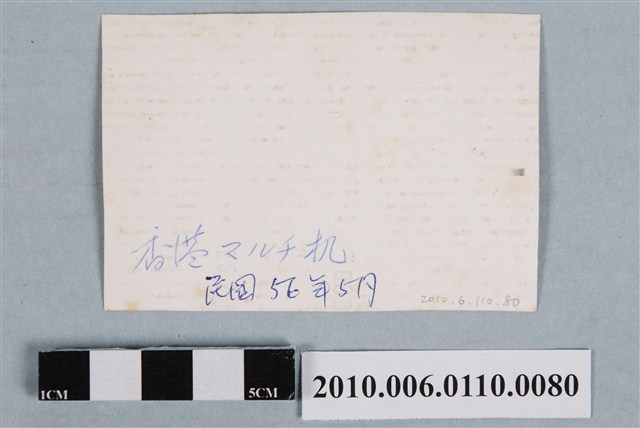 香港マルチ机
民国56年5月
2010.6.110.80
1CM
5CM
2010.006.0110.0080